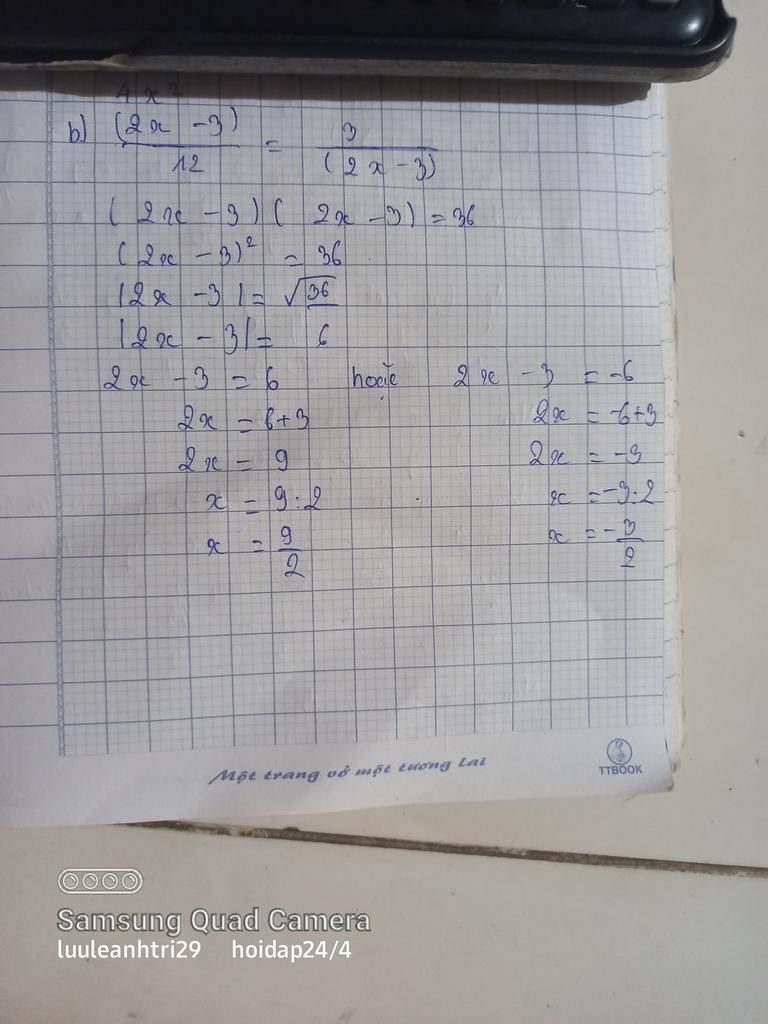 4x²
b) (2x - 3)/12 = 3/(2x - 3)
(2x - 3)(2x - 3) = 36
(2x - 3)² = 36
|2x - 3| = √36
|2x - 3| = 6
2x - 3 = 6 hoặc 2x - 3 = -6
2x = 6+3 2x = -6+3
2x = 9 2x = -3
x = 9:2 x = -3:2
x = 9/2 x = -3/2
Một trang vở một tương lai
TTBOOK
Samsung Quad Camera
luuleanhtri29 hoidap24/4